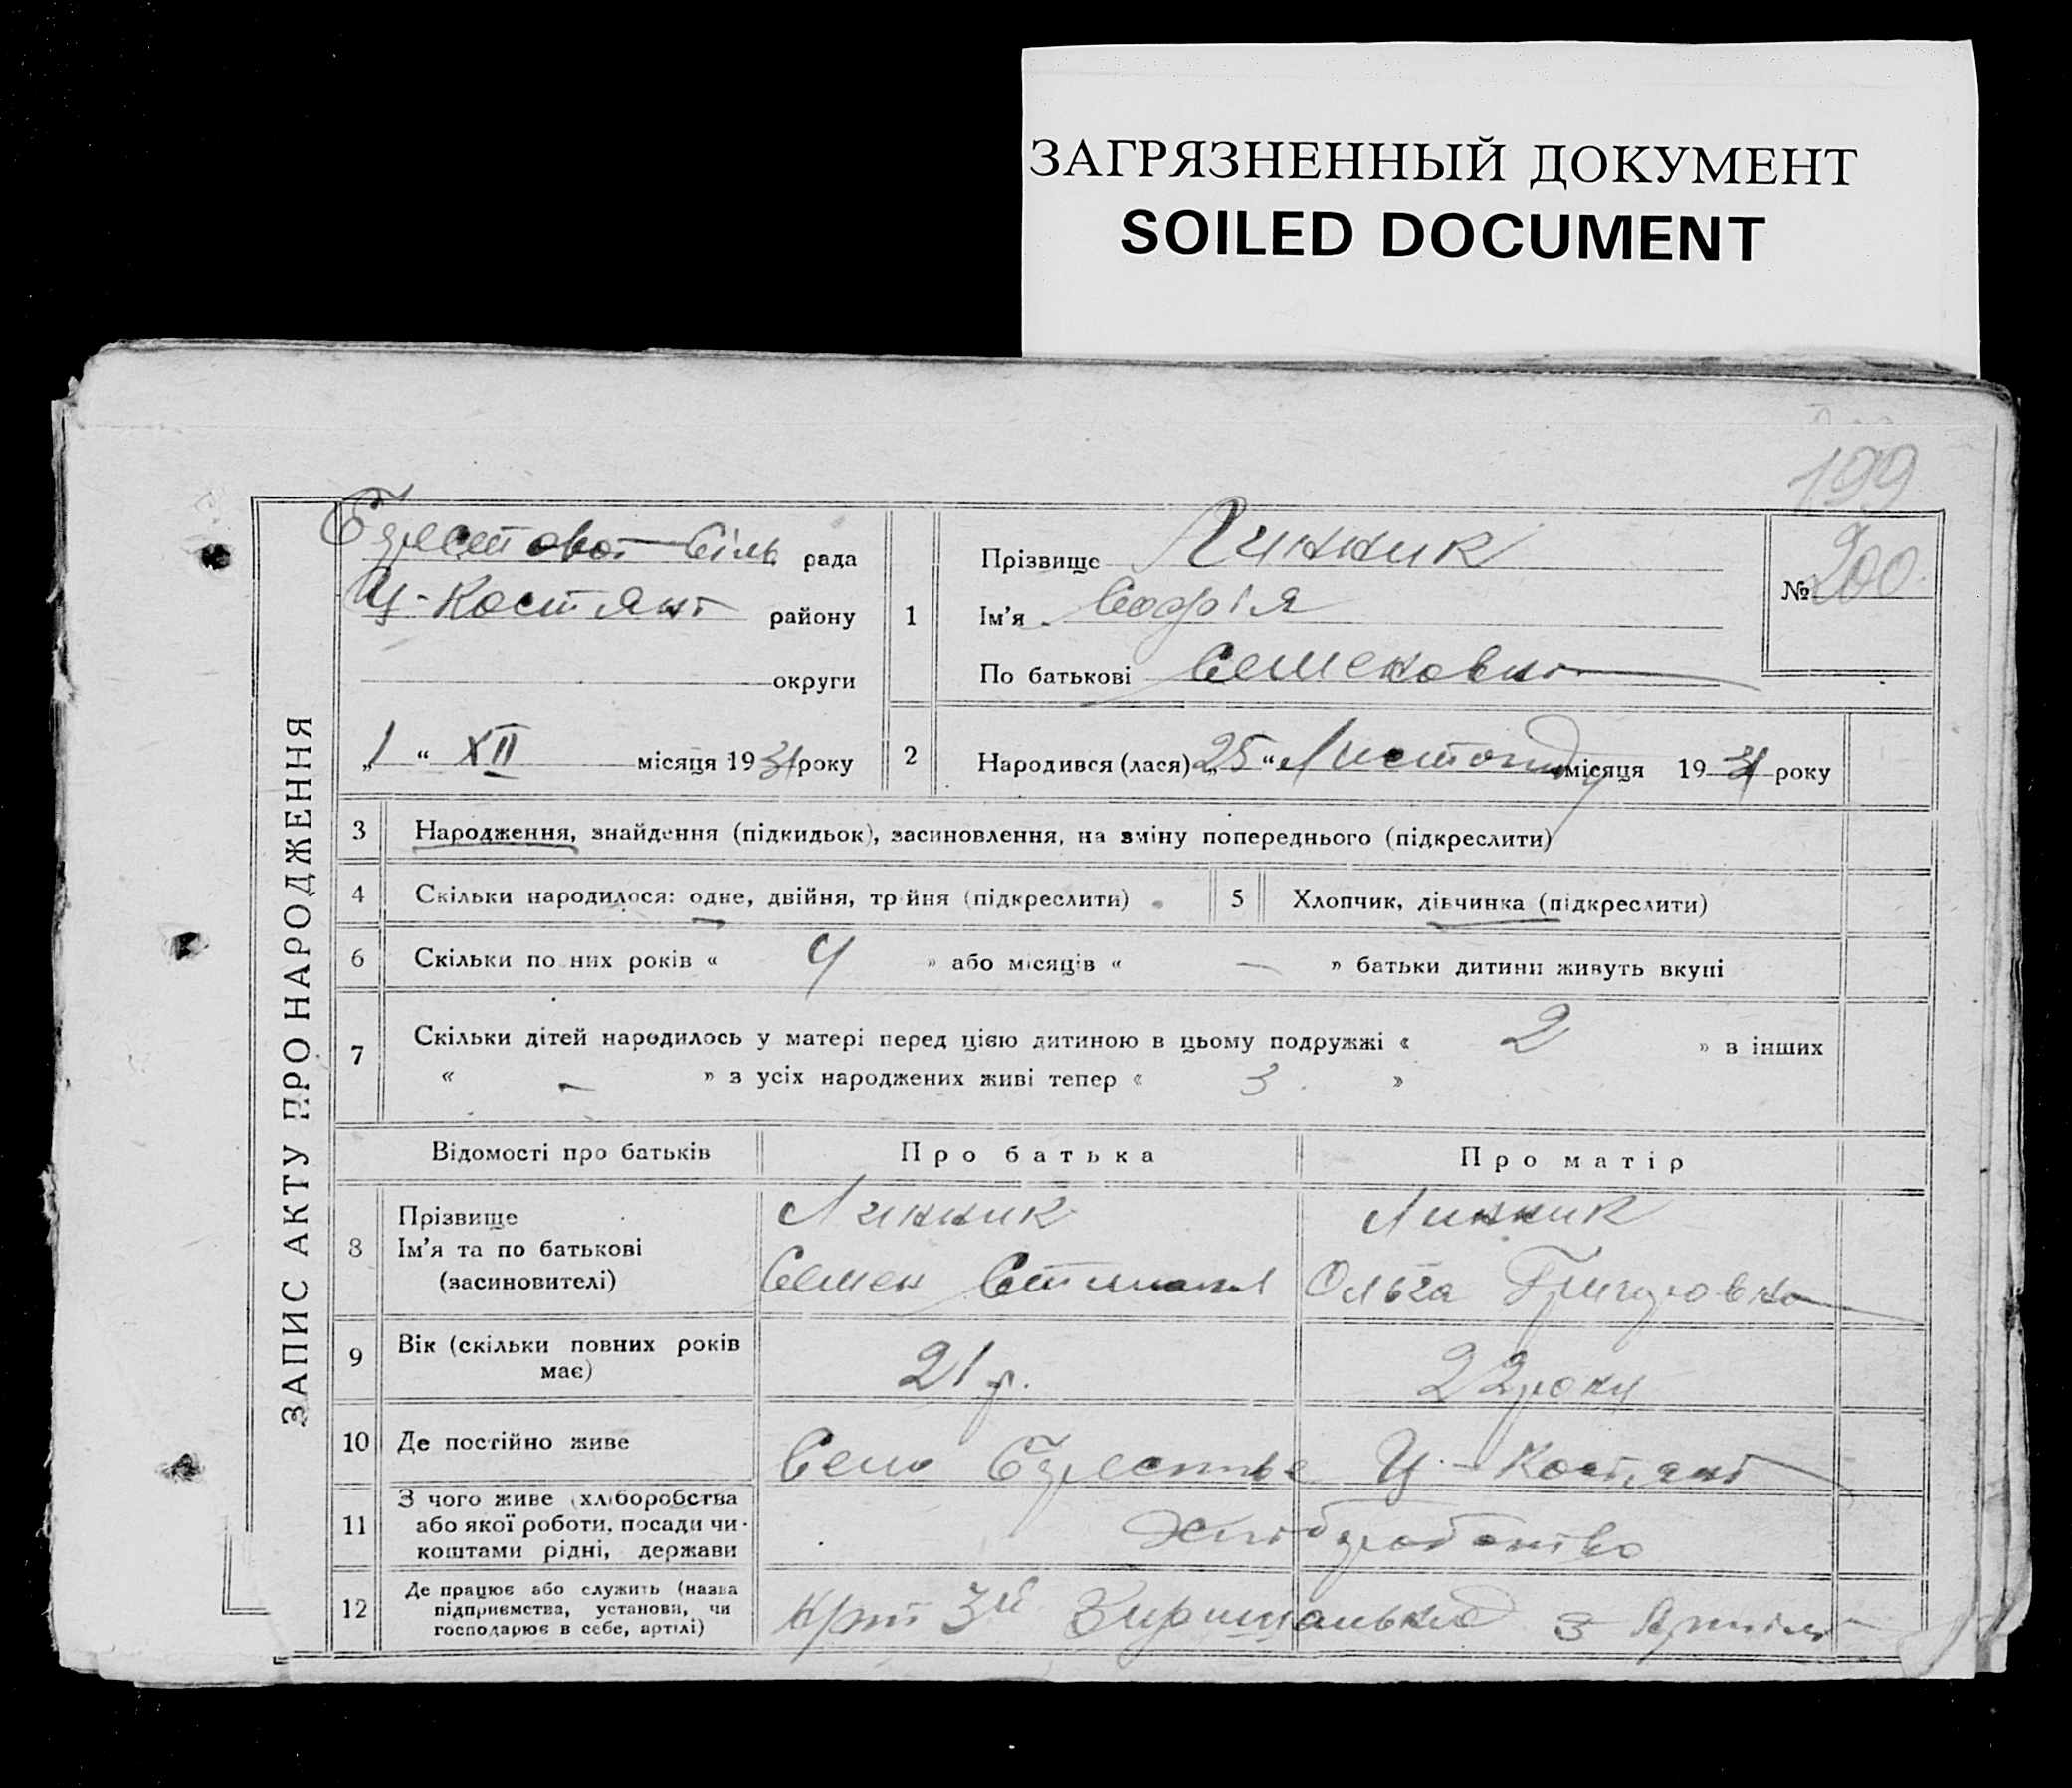 ЗАГРЯЗНЕННЫЙ ДОКУМЕНТ
SOILED DOCUMENT
199
ЗАПИС АКТУ ПРО НАРОДЖЕННЯ
рада
району
округи
„1“ XII місяця 1931 року
1
Прізвище Линник
Ім'я Софія
По батькові Семеновна
№ 200
2
Народився (лася) „25“ Листопад місяця 1931 року
3 Народження, знайдення (підкидьок), засиновлення, на зміну попереднього (підкреслити)
4 Скільки народилося: одне, двійня, трійня (підкреслити)
5 Хлопчик, дівчинка (підкреслити)
6 Скільки повних років « 4 » або місяців « — » батьки дитини живуть вкупі
7 Скільки дітей народилось у матері перед цією дитиною в цьому подружжі « 2 » в інших
« – » з усіх народжених живі тепер « 3 »
Відомості про батьків Про батька Про матір
8 Прізвище Линник Линник
Ім'я та по батькові Семен Ольга
(засиновителі)
9 Вік (скільки повних років має) 21 р. 22 роки
10 Де постійно живе Село Ц-Костянт
11 З чого живе (хліборобства або якої роботи, посади чи коштами рідні, держави Хліборобство
12 Де працює або служить (назва підприємства, установи, чи господарює в себе, артілі) 3й з